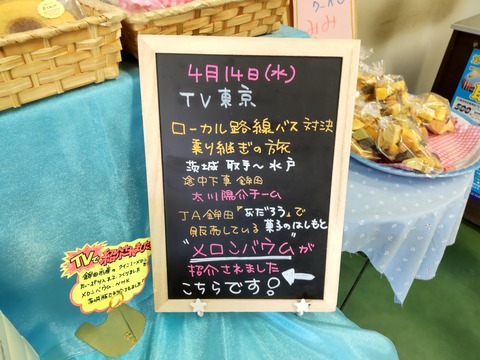 4月14日(水)
TV東京
ローカル路線バス対決
乗り継ぎの旅
茨城 取手〜水戸
途中下車 鉾田
太川陽介チーム
JA鉾田「なだろう」で
販売している 菓子のはしもと
"メロンバウム"が
紹介されました
こちらです!
TVで紹介され
メロンバウム、NHK
500